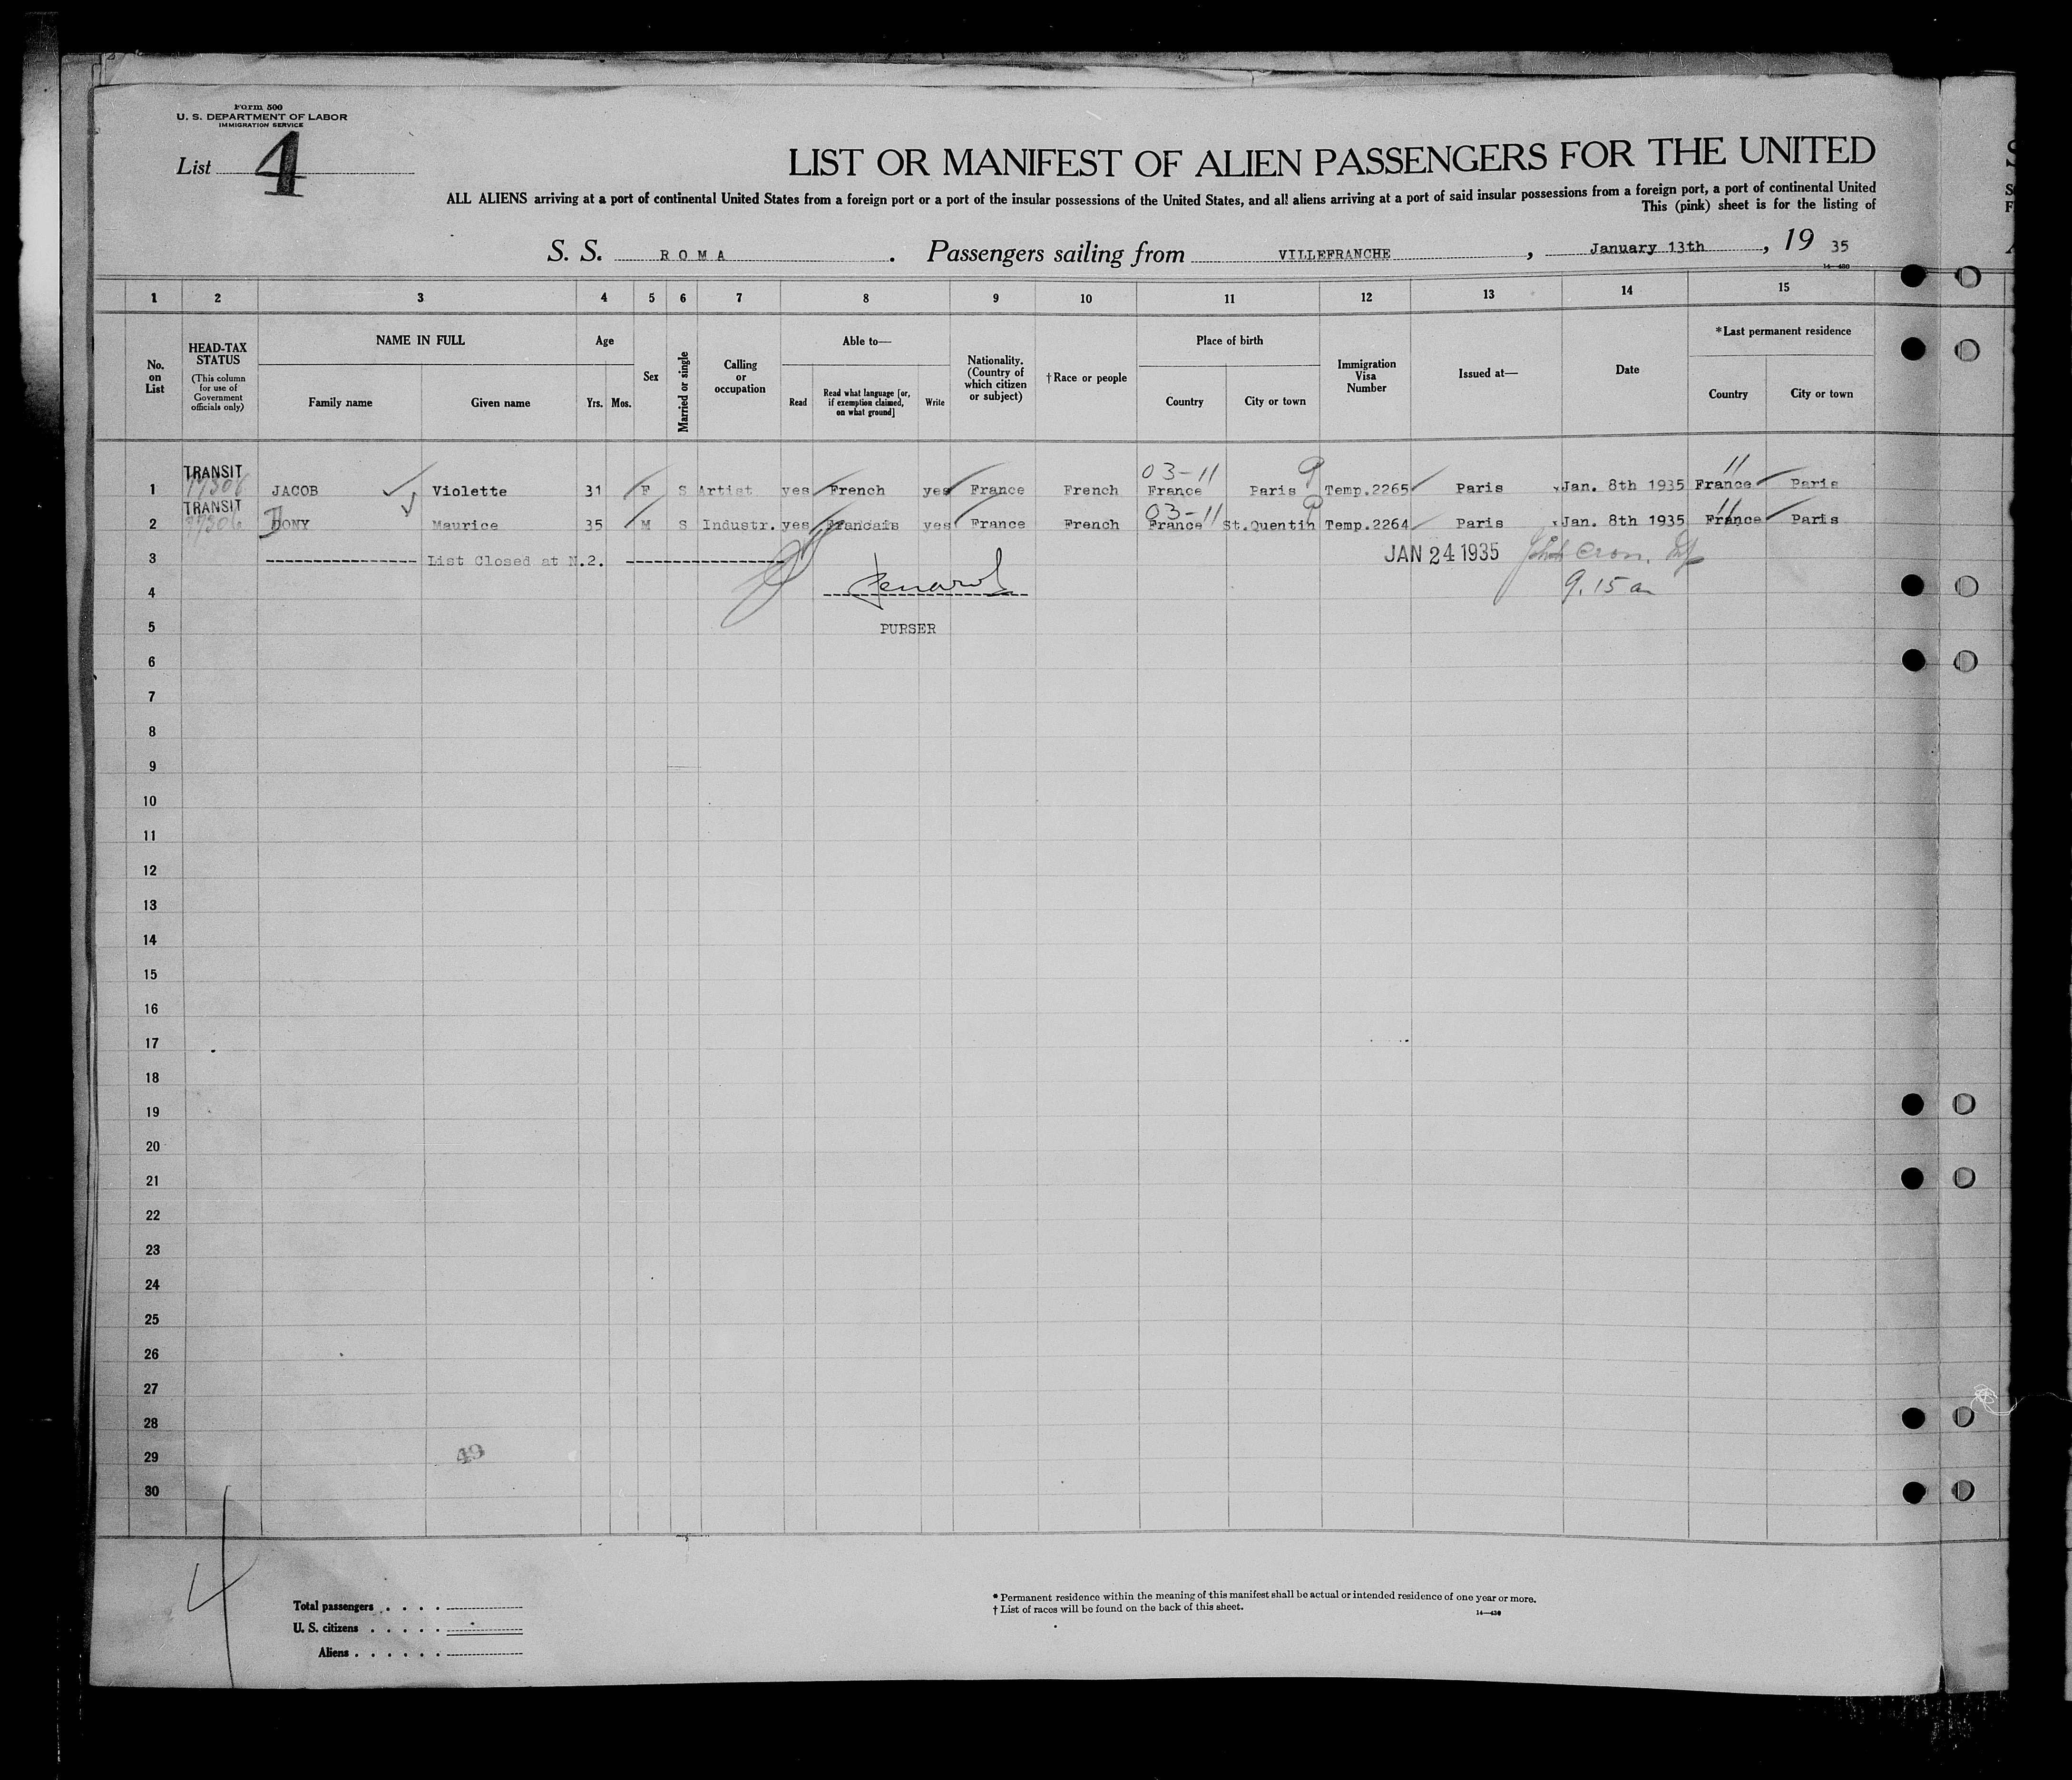 Form 500
U. S. DEPARTMENT OF LABOR
IMMIGRATION SERVICE
List 4
LIST OR MANIFEST OF ALIEN PASSENGERS FOR THE UNITED
ALL ALIENS arriving at a port of continental United States from a foreign port or a port of the insular possessions of the United States, and all aliens arriving at a port of said insular possessions from a foreign port, a port of continental United
This (pink) sheet is for the listing of
S. S. ROMA . Passengers sailing from VILLEFRANCHE , January 13th , 19 35
1 2 3 4 5 6 7 8 9 10 11 12 13 14 15
No. on List
HEAD-TAX STATUS (This column for use of Government officials only)
NAME IN FULL
Family name Given name
Age
Yrs. Mos.
Sex
Married or single
Calling or occupation
Able to—
Read
Read what language [or, if exemption claimed, on what ground]
Write
Nationality. (Country of which citizen or subject)
†Race or people
Place of birth
Country City or town
Immigration Visa Number
Issued at—
Date
*Last permanent residence
Country City or town
TRANSIT 03-11 11
1 JACOB Violette 31 F S Artist yes French yes France French France Paris Temp.2265 Paris Jan. 8th 1935 France Paris
TRANSIT 03-11 11
2 DONY Maurice 35 M S Industr. yes Francais yes France French France St.Quentin Temp.2264 Paris Jan. 8th 1935 France Paris
3 ---------------- List Closed at N.2. ----------------- JAN 24 1935
4 9.15 a
5 PURSER
6
7
8
9
10
11
12
13
14
15
16
17
18
19
20
21
22
23
24
25
26
27
28
29 49
30
4
Total passengers . . . .
U. S. citizens . . . . .
Aliens . . . . . .
* Permanent residence within the meaning of this manifest shall be actual or intended residence of one year or more.
† List of races will be found on the back of this sheet.
14—430